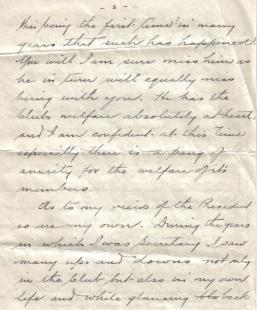 - 2 -
This being the first time in many
years that such has happened.
You will I am sure miss him as
he in turn will equally miss
being with you. He has the
Clubs welfare absolutely at heart,
and I am confident at this time
especially there is a pang of
anxiety for the welfare of its
members.
As to my views of the President
so are my own. During the years
in which I was Secretary I saw
many ups and downs not only
in the Club but also in my own
life and while glancing back